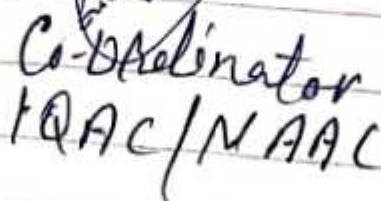 Co-Ordinator
IQAC/NAAC